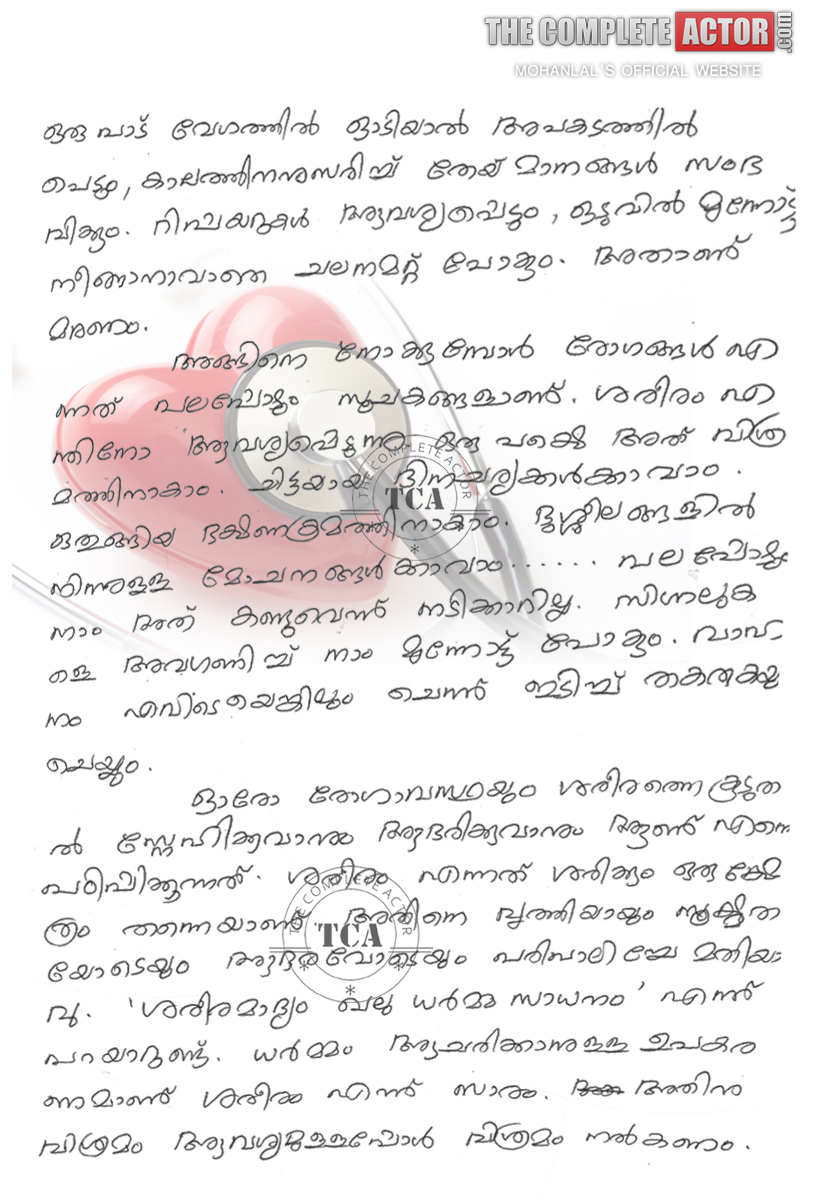 THE COMPLETE ACTOR .com
MOHANLAL'S OFFICIAL WEBSITE
ഒരുപാട് വേഗത്തിൽ ഓടിയാൽ അപകടത്തിൽ
പെടും, കാലത്തിനനുസരിച്ച് തേയ്മാനങ്ങൾ സംഭ
വിക്കും. റിപ്പയറുകൾ ആവശ്യപ്പെടും, ഒടുവിൽ മുന്നോട്ട്
നീങ്ങാനാവാതെ ചലനമറ്റ് പോകും. അതാണ്
മരണം.
അങ്ങിനെ നോക്കുമ്പോൾ രോഗങ്ങൾ എ
ന്നത് പലപ്പോഴും സൂചകങ്ങളാണ്. ശരീരം എ
ന്തിനോ ആവശ്യപ്പെടുന്നു ഒരു പക്ഷെ അത് വിശ്ര
മത്തിനാകാം. ചിട്ടയായ ദിനചര്യക്കൾക്കാവാം.
ഒതുങ്ങിയ ഭക്ഷണക്രമത്തിനാകാം. ദുശ്ശീലങ്ങളിൽ
നിന്നുള്ള മോചനങ്ങൾക്കാവാം...... പലപ്പോഴും
നാം അത് കണ്ടുവെന്ന് നടിക്കാറില്ല. സിഗ്നലുക
ളെ അവഗണിച്ച് നാം മുന്നോട്ട് പോകും. വാഹ
നം എവിടെയെങ്കിലും ചെന്ന് ഇടിച്ച് തകരുകയു
ചെയ്യും.
ഓരോ രോഗാവസ്ഥയും ശരീരത്തെ കൂടുത
ൽ സ്നേഹിക്കുവാനും ആദരിക്കുവാനും ആണ് എന്നെ
പഠിപ്പിക്കുന്നത്. ശരീരം എന്നത് ശരിക്കും ഒരു ക്ഷേ
ത്രം തന്നെയാണ് അതിനെ വൃത്തിയായും സൂക്ഷ്മത
യോടെയും ആദരവോടെയും പരിപാലിച്ചേ മതിയാ
വൂ. 'ശരീരമാദ്യം ഖലു ധർമ്മ സാധനം' എന്ന്
പറയാറുണ്ട്. ധർമ്മം ആചരിക്കാനുള്ള ഉപകര
ണമാണ് ശരീരം എന്ന് സാരം. അതിനു
വിശ്രമം ആവശ്യമുള്ളപ്പോൾ വിശ്രമം നൽകണം.
THE COMPLETE ACTOR
TCA
THE COMPLETE ACTOR
TCA